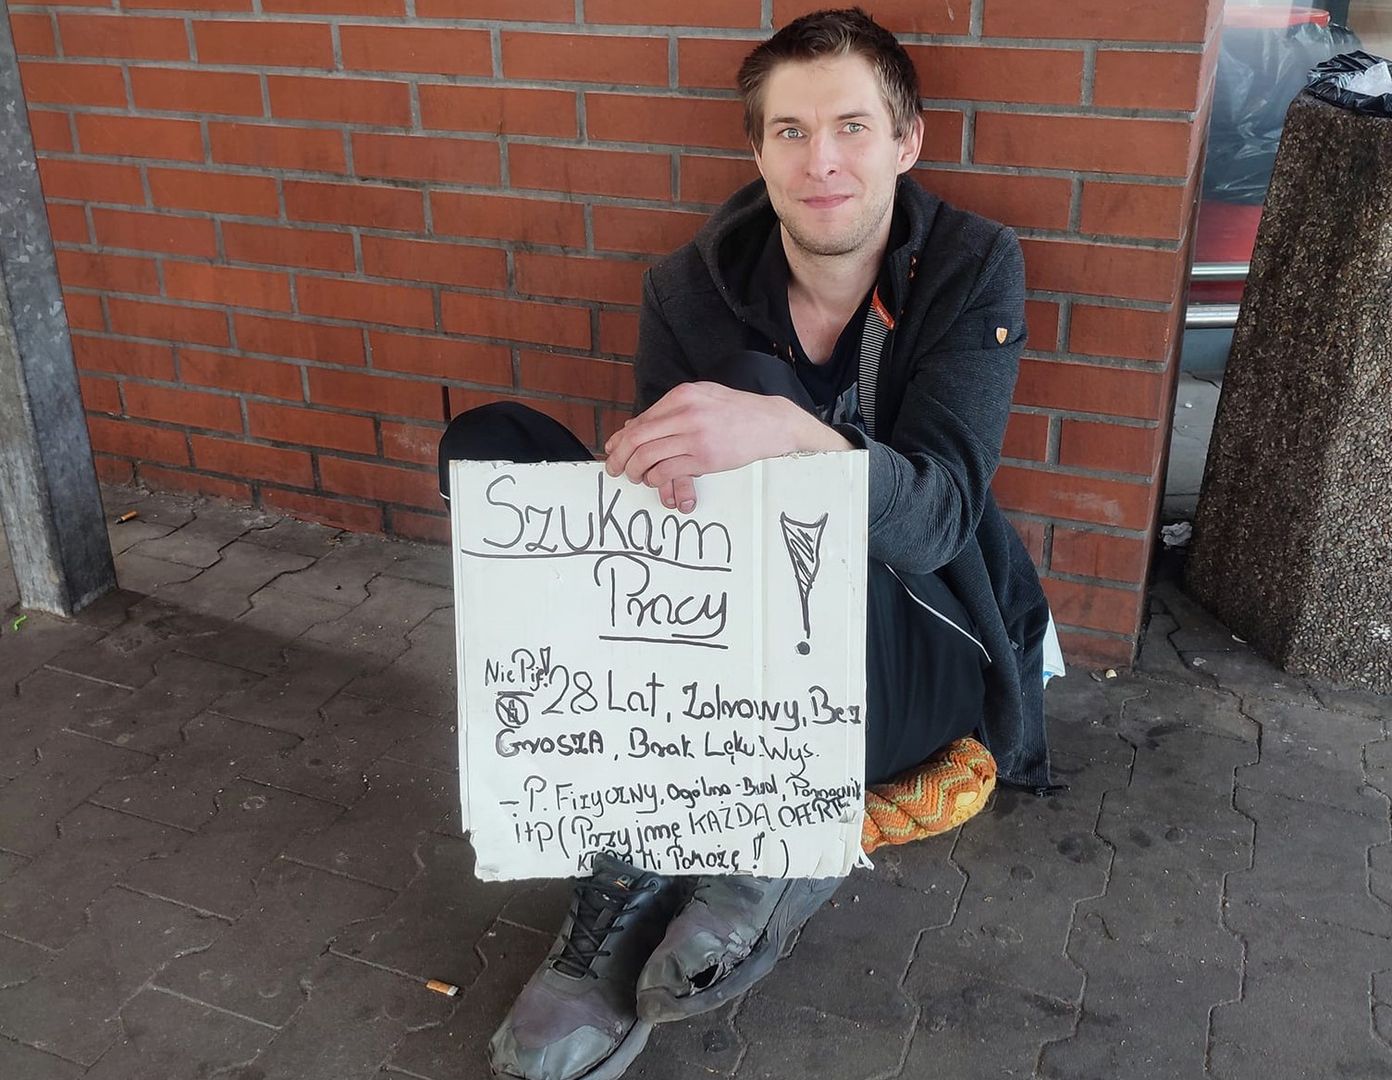 Szukam
Pracy !
Nie Piję!
28 Lat, Zdrowy, Bez
GrosZA, Brak Lęku. Wys.
– P. FizyczNy, Ogólno-Bud, Pomocnik
itp ( Przyjmę KAŻDĄ OFERTĘ
KtórA Mi Pomoże ! )